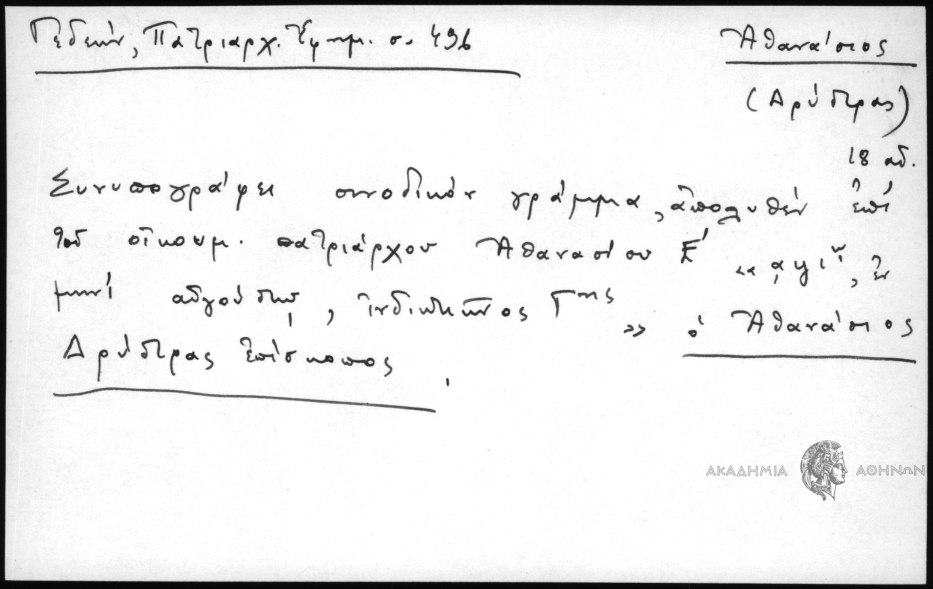 Γεδεών, Πατριαρχ. Ἐφημ. σ. 496
Ἀθανάσιος
(Δρύστρας)
18 αἰ.
Συνυπογράφει συνοδικὸν γράμμα, ἀπολυθὲν ἐπὶ
τοῦ οἰκουμ. πατριάρχου Ἀθανασίου Ε΄ «͵αψιʹ, ἐν
μηνὶ αὐγούστῳ, ἰνδικτιῶνος Γης » ὁ Ἀθανάσιος
Δρύστρας ἐπίσκοπος.
ΑΚΑΔΗΜΙΑ ΑΘΗΝΩΝ